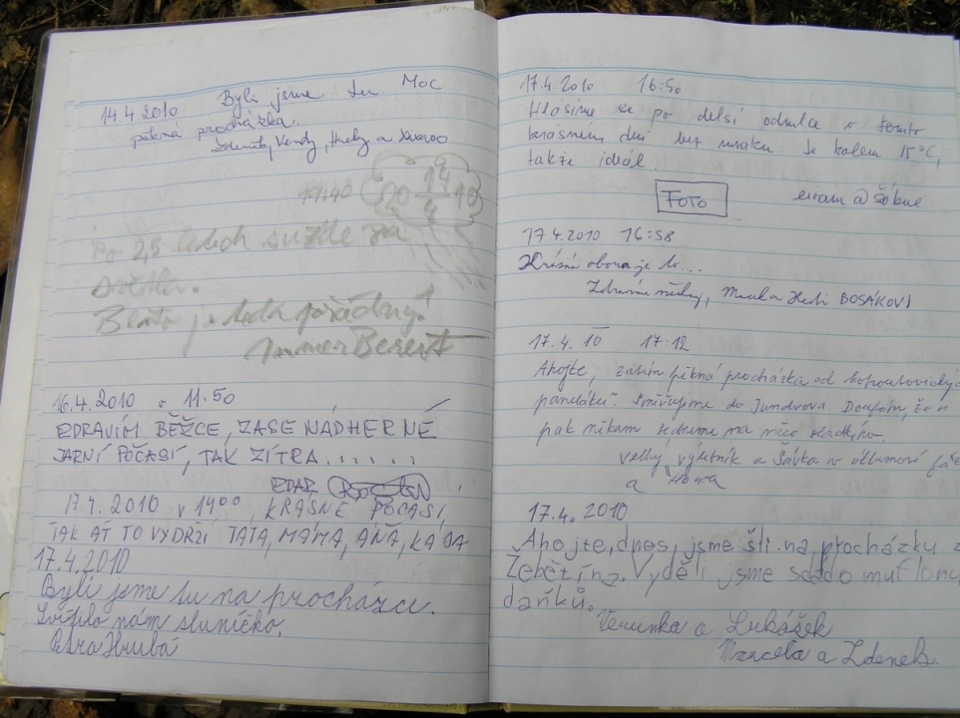 14.4.2010 Byli jsme tu. Moc
pěkná procházka.
Vendy, a
Po 2,5 letech
světlu.
16.4.2010 v 11.50
ZDRAVÍM BĚŽCE, ZASE NÁDHERNÉ
JARNÍ POČASÍ, TAK ZÍTRA......
ZDAR
17.4.2010 v 14⁰⁰ KRÁSNÉ POČASÍ,
TAK AŤ TO VYDRŽÍ TÁTA, MÁMA, ÁŇA, KÁJA
17.4.2010
Byli jsme tu na procházce.
Svítilo nám sluníčko.
Petra Hrubá
17.4.2010 16:50
Hlásíme se po delší odmlce v tomto
krásném dni bez mraku. Je kolem 15°C,
takže ideál
FOTO
17.4.2010 16:58
Krásná obora je to...
Zdravíme všechny, a BOSÁKOVI
17.4.10 17·12
Ahojte, zatím pěkná procházka od
paneláků. Směřujeme do Jundrova. Doufám, že
pak někam na něco sladkého.
velký výletník a Šárka v
a
17.4.2010
Ahojte, dnes, jsme šli na procházku z
Žebětína. Vyděli jsme stádo muflonů
daňků.
Verunka a Lukášek
Marcela a Zdenek.